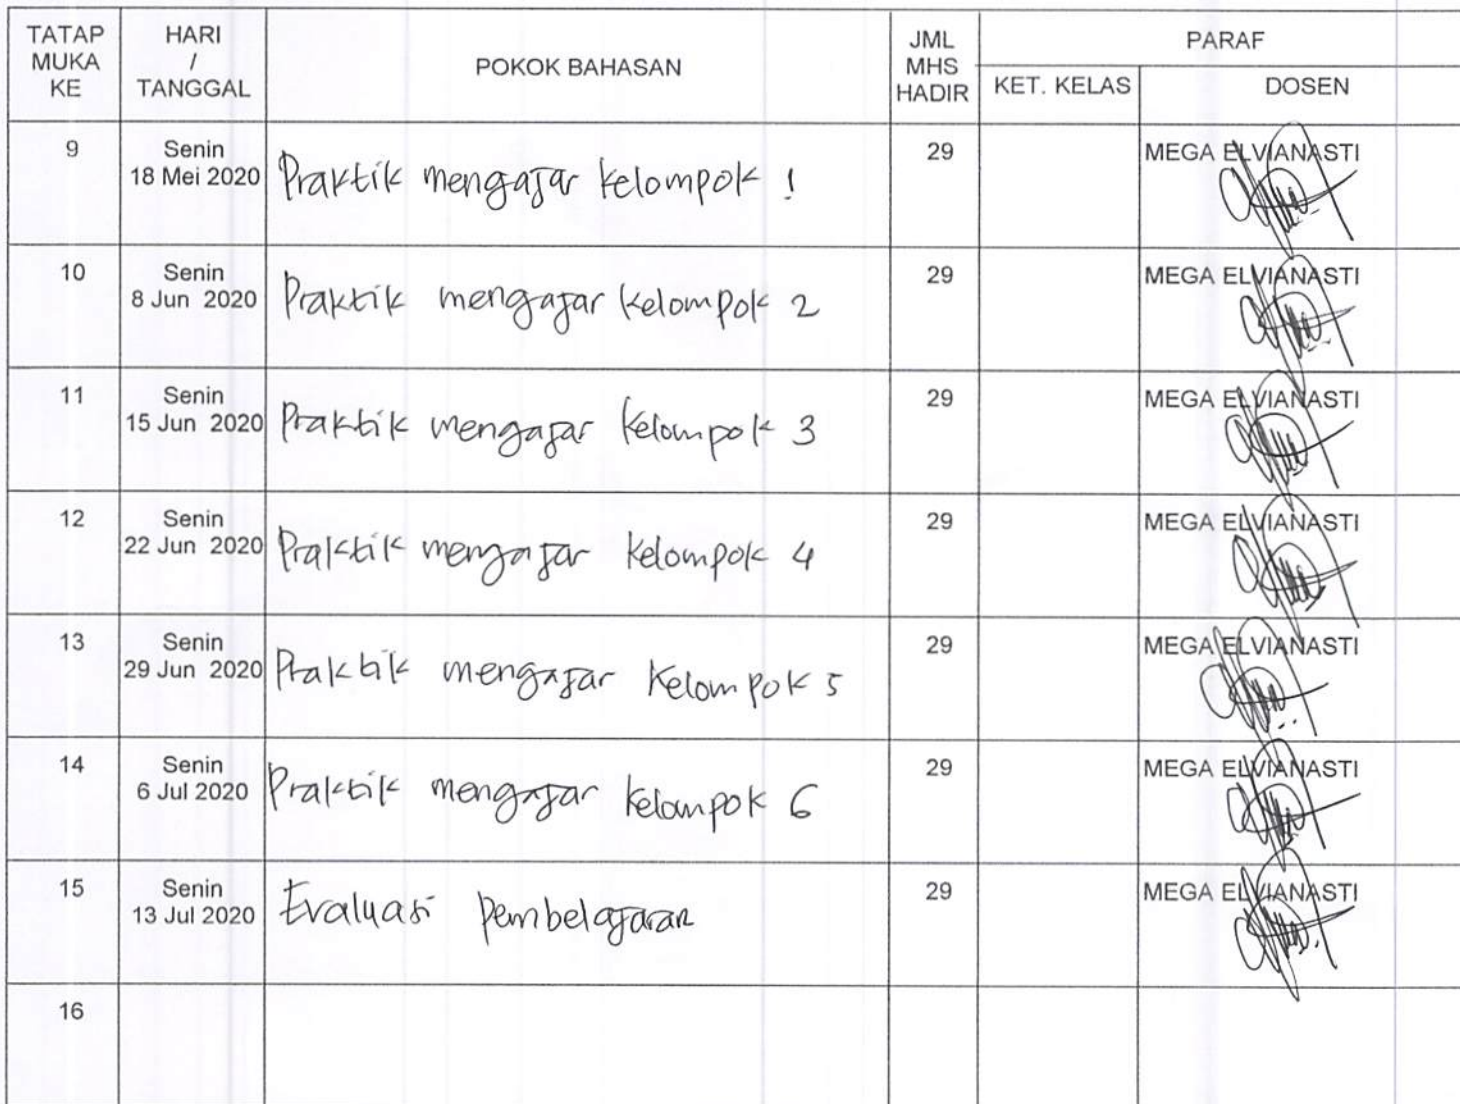 TATAP MUKA KE
HARI / TANGGAL
POKOK BAHASAN
JML MHS HADIR
PARAF
KET. KELAS
DOSEN
9
Senin
18 Mei 2020
Praktik mengajar kelompok 1
29
MEGA ELVIANASTI
10
Senin
8 Jun 2020
Praktik mengajar kelompok 2
29
MEGA ELVIANASTI
11
Senin
15 Jun 2020
Praktik mengajar kelompok 3
29
MEGA ELVIANASTI
12
Senin
22 Jun 2020
Praktik mengajar kelompok 4
29
MEGA ELVIANASTI
13
Senin
29 Jun 2020
Praktik mengajar kelompok 5
29
MEGA ELVIANASTI
14
Senin
6 Jul 2020
Praktik mengajar kelompok 6
29
MEGA ELVIANASTI
15
Senin
13 Jul 2020
Evaluasi pembelajaran
29
MEGA ELVIANASTI
16